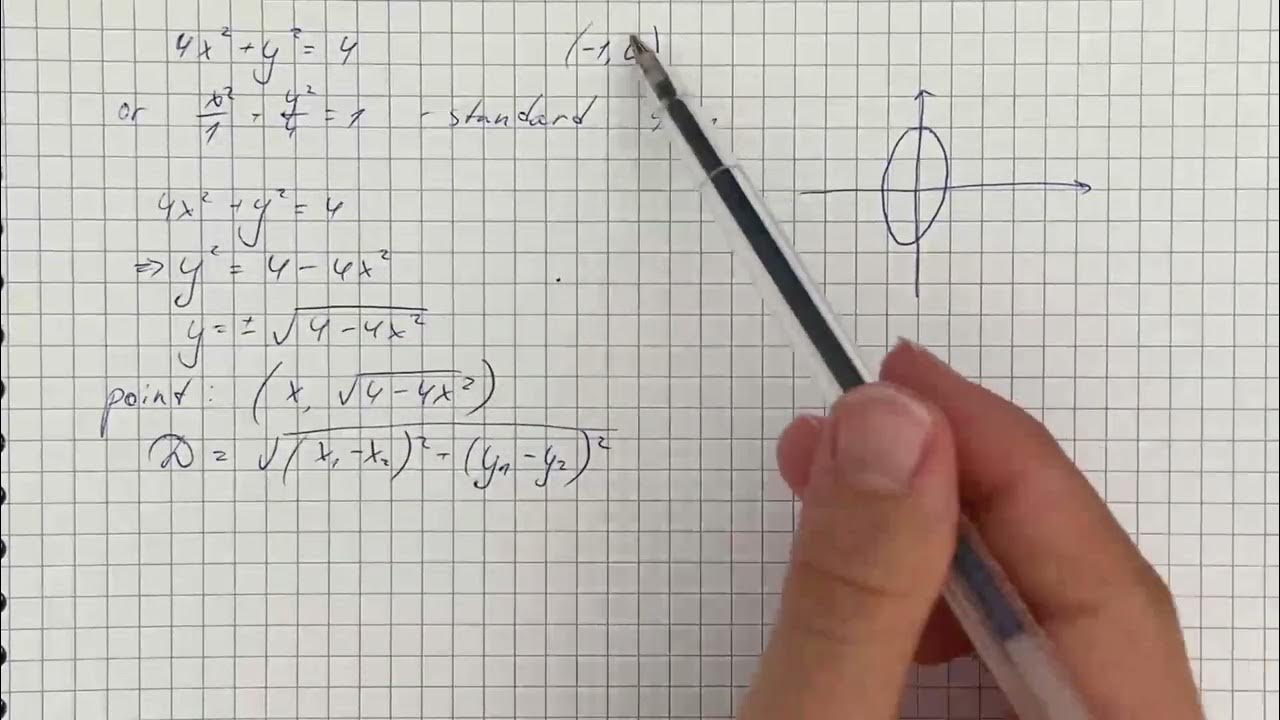 4x² + y² = 4 (-1,
or x²/1 - y²/4 = 1 - standard
4x² + y² = 4
⇒ y² = 4 - 4x²
y = ± √(4 - 4x²)
point: (x, √(4 - 4x²))
D = √((x₁ - x₂)² - (y₁ - y₂)²)